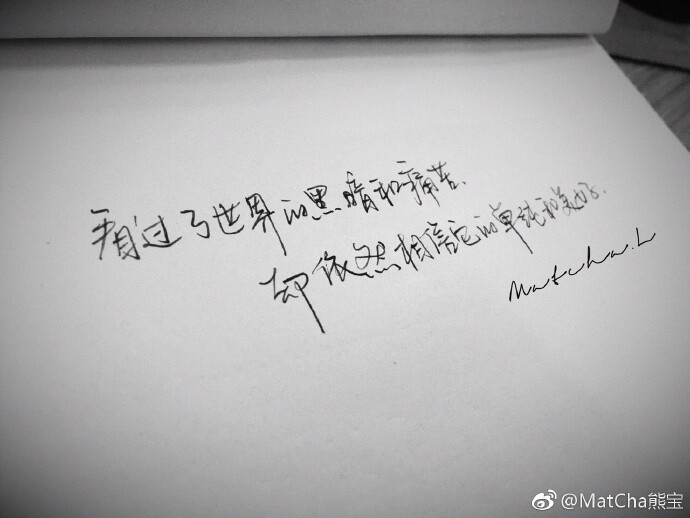 看过了世界的黑暗和痛苦.
却依然相信它的单纯和美好.
Matcha.L
@MatCha熊宝